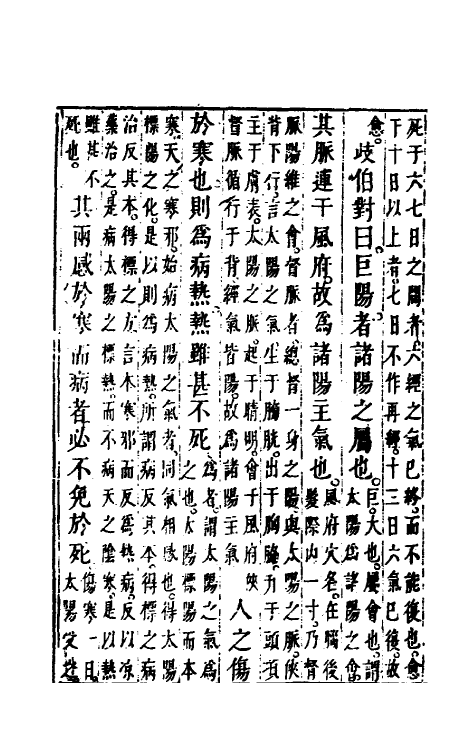 死于六七日之間者六經之氣已終而不能復也愈
下十日以上者七日不作再經十三日六氣已復故
愈
岐伯對曰巨陽者諸陽之屬也
巨大也屬會也謂
太陽爲諸陽之會
其脈連于風府故爲諸陽主氣也
風府穴名在腦後
髮際內一寸乃督
脈陽維之會督脈者總督一身之陽與太陽之脈俠
背下行言太陽之氣生于膀胱出于胸脇升于頭項
主于膚表太陽之脈起于睛明會于風府俠
督脈循行于背經氣皆陽故爲諸陽主氣
人之傷
於寒也則爲病熱熱雖甚不死
爲者謂太陽之氣爲
之也太陽標陽而本
寒天之寒邪始病太陽之氣者同氣相感也得太陽
標陽之化是以則爲病熱所謂病反其本得標之病
治反其本得標之方言本寒邪而反爲熱病反以凉
藥治之是病太陽之標熱而不病天之陰寒是以熱
雖甚不
死也
其兩感於寒而病者必不免於死
傷寒一日
太陽受